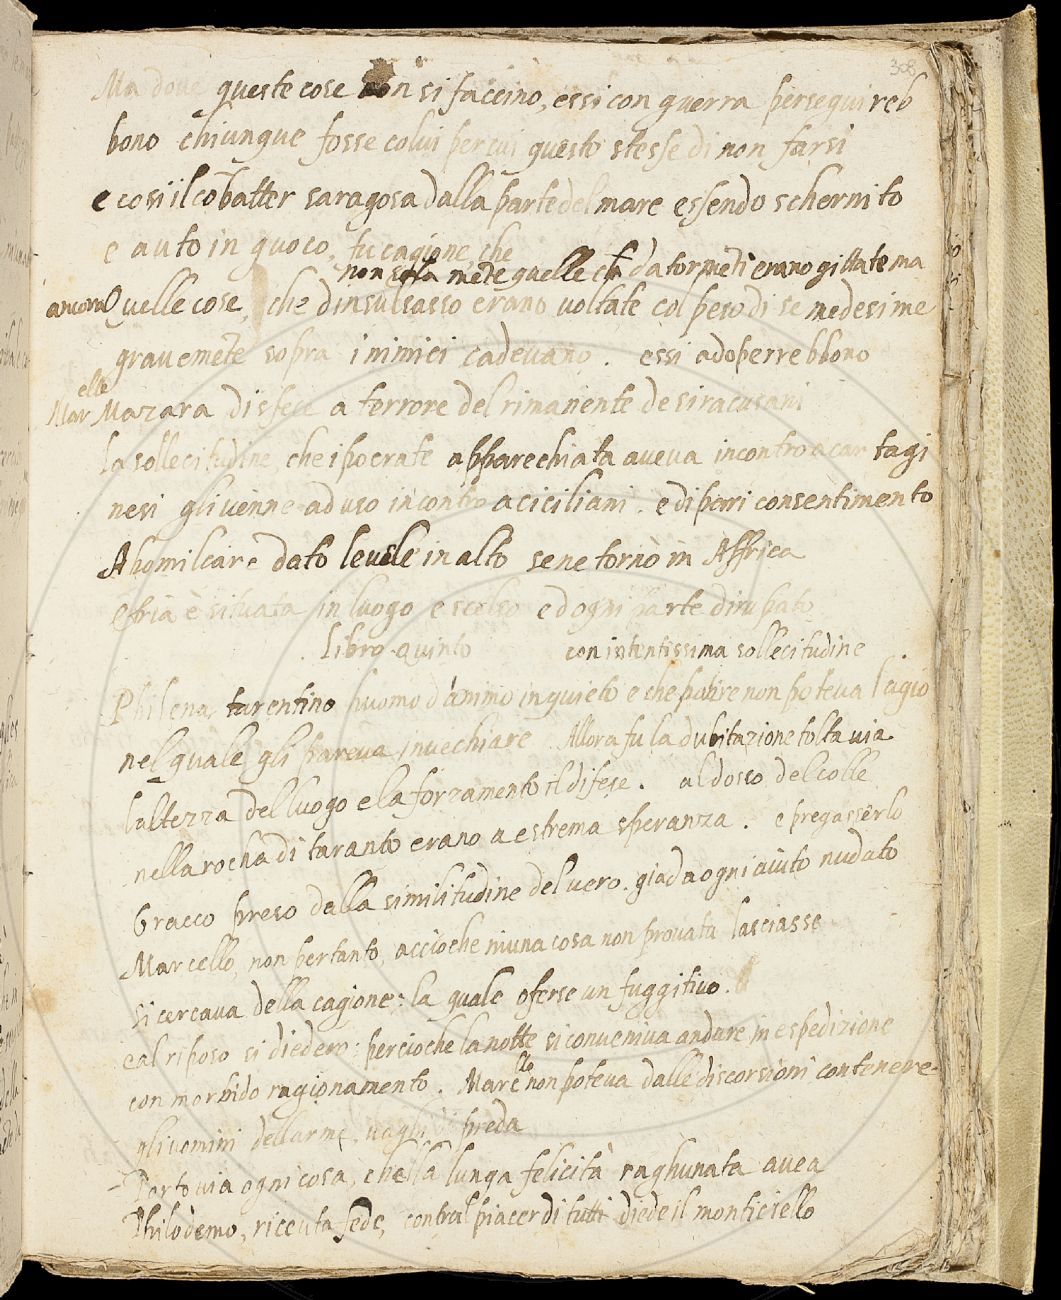 308
Ma dove queste cose non si faccino, essi con guerra perseguireb
bono chiunque fosse colui per cui questo stesse di non farsi
e cosi il cōbatter saragosa dalla parte del mare essendo schernito
e auto in guoco, fu cagione, che
non sola mēte quelle ch da tormēti erano gittate ma
ancora Quelle cose, che dinsulsasso erano voltate col peso di se medesime
gravemēte sopra i nimici cadevano. essi adoperrebbono
elle
Mar Mazara disfece a terrore del rimanente de siracusani
la sollecitudine, che ipocrate apparechiata aveva incontro a car tagi
nesi gli venne ad uso incontro a ciciliani. e di pari consentimento
A bomilcare dato le vele in alto se ne tornò in Affrica
è situata in luogo e scelso ed ogni parte dirupato
Libro Quinto con intentissima sollecitudine
Philena tarentino huomo d'animo inquieto e che patire non poteva lagio
nel quale gli pareva invechiare Allora fu la dubitazione tolta via
laltezza del luogo e la forzamento il difese. al dosso del colle
nella rocha di taranto erano a estrema speranza. e pregasserlo
Gracco preso dalla similitudine del vero. gia da ogni aiuto nudato
Marcello, non pertanto, accioche niuna cosa non provata lasciasse
si cercava della cagione: la quale oferse un fuggitivo.
e al riposo si diedero: percioche la notte si conveniva andare in espedizione
con morbido ragionamento. Marcello non poteva dalle discorsioni contenere
gli uomini dellarme, vaghi di preda
Porto via ogni cosa, che lla lunga felicità raghunata avea
Philodemo, ricevuta fede, contral piacer di tutti diede il monticiello